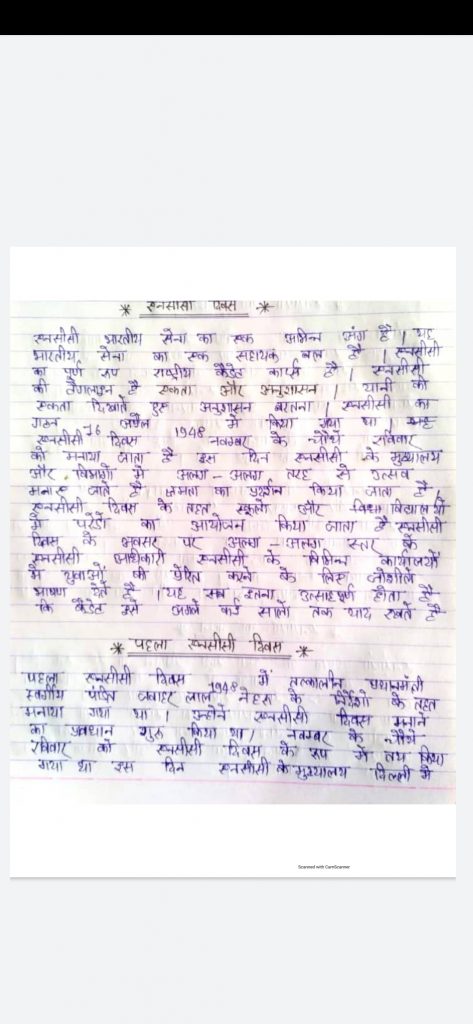 * एनसीसी दिवस *
एनसीसी भारतीय सेना का एक अभिन्न अंग है | यह
भारतीय सेना का एक सहायक बल है | एनसीसी
का पुर्ण रूप राष्ट्रीय कैडेट कार्प्स है | एनसीसी
की टैगलाइन है एकता और अनुशासन | यानी की
एकता दिखाते हुए अनुशासन बरतना | एनसीसी का
गठन 16 अप्रैल 1948 में किया गया था |
एनसीसी दिवस नवम्बर के चौथे रविवार
को मनाया जाता है इस दिन एनसीसी के मुख्यालय
और विभागों में अलग - अलग तरह से उत्सव
मनाए जाते है क्षमता का प्रदर्शन किया जाता है
एनसीसी दिवस के तहत स्कूलो और विश्व विद्यालयो
में परेडो का आयोजन किया जाता है एनसीसी
दिवस के अवसर पर अलग - अलग स्तर के
एनसीसी अधिकारी एनसीसी के विभिन्न कार्यालयों
में युवाओं को प्रेरित करने के लिए जोशीले
भाषण देते है | यह सब इतना उत्साहपूर्ण होता है
कि कैडेट इसे अगले कई सालो तक याद रखते है
* पहला एनसीसी दिवस *
पहला एनसीसी दिवस 1948 में तत्कालीन प्रधानमंत्री
स्वर्गीय पंडित जवाहर लाल नेहरू के निर्देशो के तहत
मनाया गया था | उन्होंने एनसीसी दिवस मनाने
का प्रावधान शुरू किया था | नवम्बर के चौथे
रविवार को एनसीसी दिवस के रूप में तय किया
गया था इस दिन एनसीसी के मुख्यालय दिल्ली में
Scanned with CamScanner